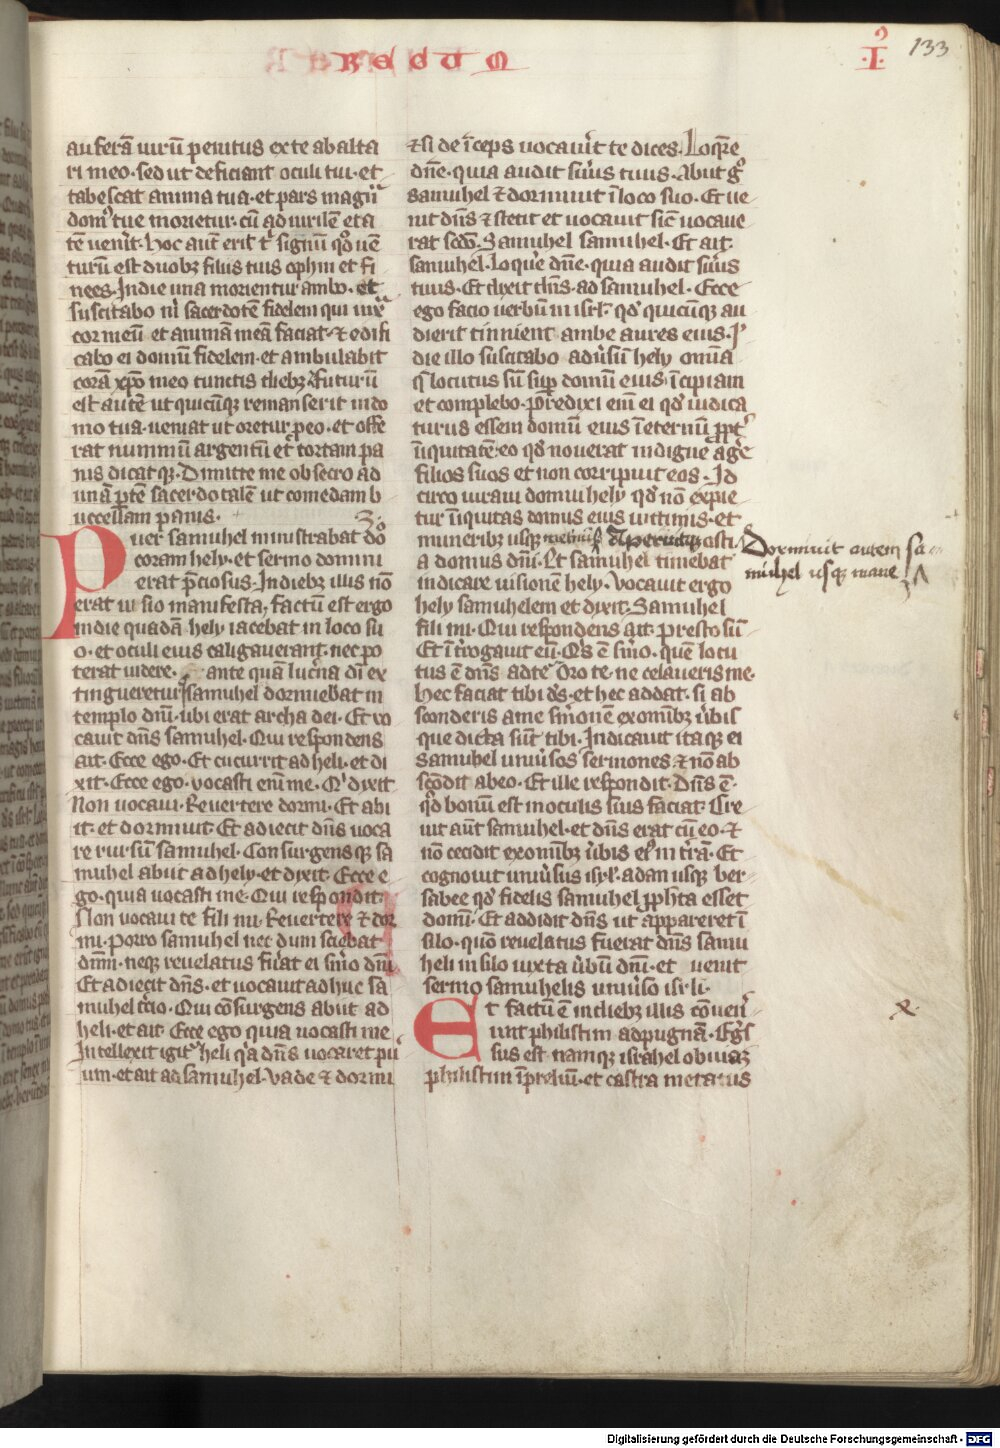 REGUM
.I.
133
auferā uirū penitus ex te ab alta
ri meo. sed ut deficiant oculi tui. et
tabescat anima tua. et pars magna
domꝰ tue morietur. cū ad uirilē eta
tē uenit. Hoc autē erit t̄ signū qd̄ uē
turū est duobꝫ filiis tuis ophni et fi
nees. In die una morientur ambo. et
suscitabo m̄ sacerdotē fidelem qui iux̄
cor meū et animā meā faciat. ⁊ edifi
cabo ei domū fidelem. et ambulabit
corā xp̄o meo cunctis diebꝫ. Futurū
est autē ut quicūqꝫ remanserit in do
mo tua. ueniat ut oretur p̄ eo. et offe
rat nummū argentū et tortam pa
nis dicatqꝫ. Dimitte me obsecro ad
unā ꝑtē sacerdotalē ut comedam b
uccellam panis.
Puer samuhel ministrabat dn̄o
coram hely. et sermo domini
erat p̄ciosus. In diebꝫ illis nō
erat uisio manifesta, factū est ergo
in die quadā hely iacebat in loco su
o. et oculi eius caligauerant. nec po
terat uidere. ante quā luc̄na dī ex
tingueretur. samuhel dormiebat in
templo dn̄i. ubi erat archa dei. Et uo
cauit dn̄s samuhel. Qui respondens
ait. Ecce ego. Et cucurrit ad heli. et di
xit. Ecce ego. uocasti eni me. Qi dixit
Non uocaui. Reuertere dormi. Et abi
it. et dormiuit. Et adiecit dn̄s uoca
re rursū samuhel. Consurgensqꝫ sa
muhel abiit ad hely. et dixit. Ecce e
go. quia uocasti me. Qui respondit.
Non uocaui te fili mi. Reuertere ⁊ dor
mi. Porro samuhel nec dum sciebat
dnm̄. neqꝫ reuelatus fūat ei sm̄o dn̄i
Et adiecit dn̄s. et uocauit ad huc sa
muhel t̄cio. Qui cōsurgens abiit ad
heli. et ait. Ecce ego quia uocasti me
Intellexit igit̄ heli qa dn̄s uocaret pu
um. et ait ad samuhel. Vade ⁊ dormi
⁊ si deīceps uocau̇it te dices. Loqr̄e
dn̄e. quia audit s̄uus tuus. Abiit gͦ
samuhel ⁊ dormiuit ī loco suo. Et ue
nit dn̄s ⁊ stetit et uocauit sic̄ uocaue
rat scd̄o. Samuhel samuhel. Et ait.
samuhel. Loqūe dn̄e. quia audit s̄uus
tuus. Et dixit dn̄s. ad samuhel. Ecce
ego facio uerbū in isrl̄. qd̄ quicūqꝫ au
dierit tinnient ambe aures eius. I
die illo suscitabo adūsū hely omīa
q̄ locutus sū suꝑ domū eius. īcipiam
et complebo. Predixi enī ei qd̄ iudica
turus essem domū eius ī eternū ꝓpt̄
īiquitatē. eo qd̄ nouerat indigne aḡe
filios suos et non corripuit eos. Id
circo iuraui domui hely qd̄ nō expie
tur īiquitas domus eius uictimis. et
muneribꝫ usqꝫ Aperuitqꝫ osti
a domus dn̄i. Et samuhel timebat
indicare uisionē hely. Vocauit ergo
hely samuhelem et dixit. Samuhel
fili mi. Qui respondens ait. presto sū
Et īt̄rogauit eū. Qis ē sm̄o. quē locu
tus ē dn̄s ad te. Oro te. ne celaueris me.
hec faciat tibi ds̄. et hec addat. si ab
sconderis a me sm̄onē ex omībꝫ ūbis
que dicta sūt tibi. Indicauit itaqꝫ ei
samuhel uniūsos sermones ⁊ nō ab
scōdit ab eo. Et ille respondit. Dn̄s ē.
qd̄ bonū est in oculis suis faciat. Cre
uit aūt samuhel. et dn̄s erat cū eo. ⁊
nō cecidit ex omībꝫ ūbis eiꝰ in t̄rā. Et
cognouit uniūsus isrl̄. a dan usqꝫ ber
sabee qd̄ fidelis samuhel ꝓph̄ta esset
domī. Et addidit dn̄s ut appareret ī
silo. quō reuelatus fuerat dn̄s samu
heli in silo iuxta ūbū dn̄i. et uenit
sermo samuhelis uniūso isrl̄i.
Et factū ē in diebꝫ illis cōuen̄
iunt philistim ad pugnā. Egs̄
sus est namqꝫ israhel obuiaꝫ
philistim ī preliū. et castra metatus
Dormiuit autem sa
muhel usqꝫ mane
x
Digitalisierung gefördert durch die Deutsche Forschungsgemeinschaft - DFG